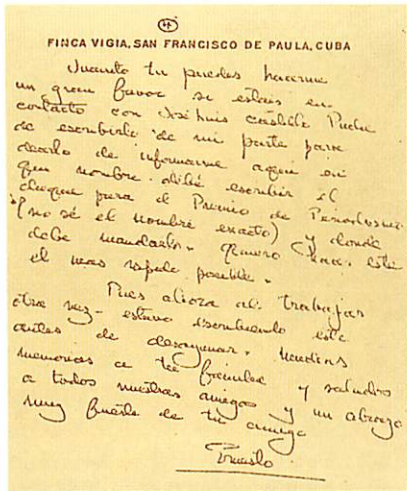 4
FINCA VIGIA, SAN FRANCISCO DE PAULA, CUBA
Juanito tu puedes hacerme
un gran favor si estais en
contacto con José Luis Castillo Puche
de escribirle de mi parte para
decirlo de informarme aqui en
que nombre debé escribir el
cheque para el Premio de Periodismo
(no sé el nombre exacto) y donde
debe mandarlo. Quiero hacer esto
el mas rapido posible.
Pues ahora al trabajar
otra vez - estuvo escribiendo este
antes de desayunar. 
memorias a tu familia y saludos
a todos nuestros amigos y un abrazo
muy fuerte de tu amigo
Ernesto